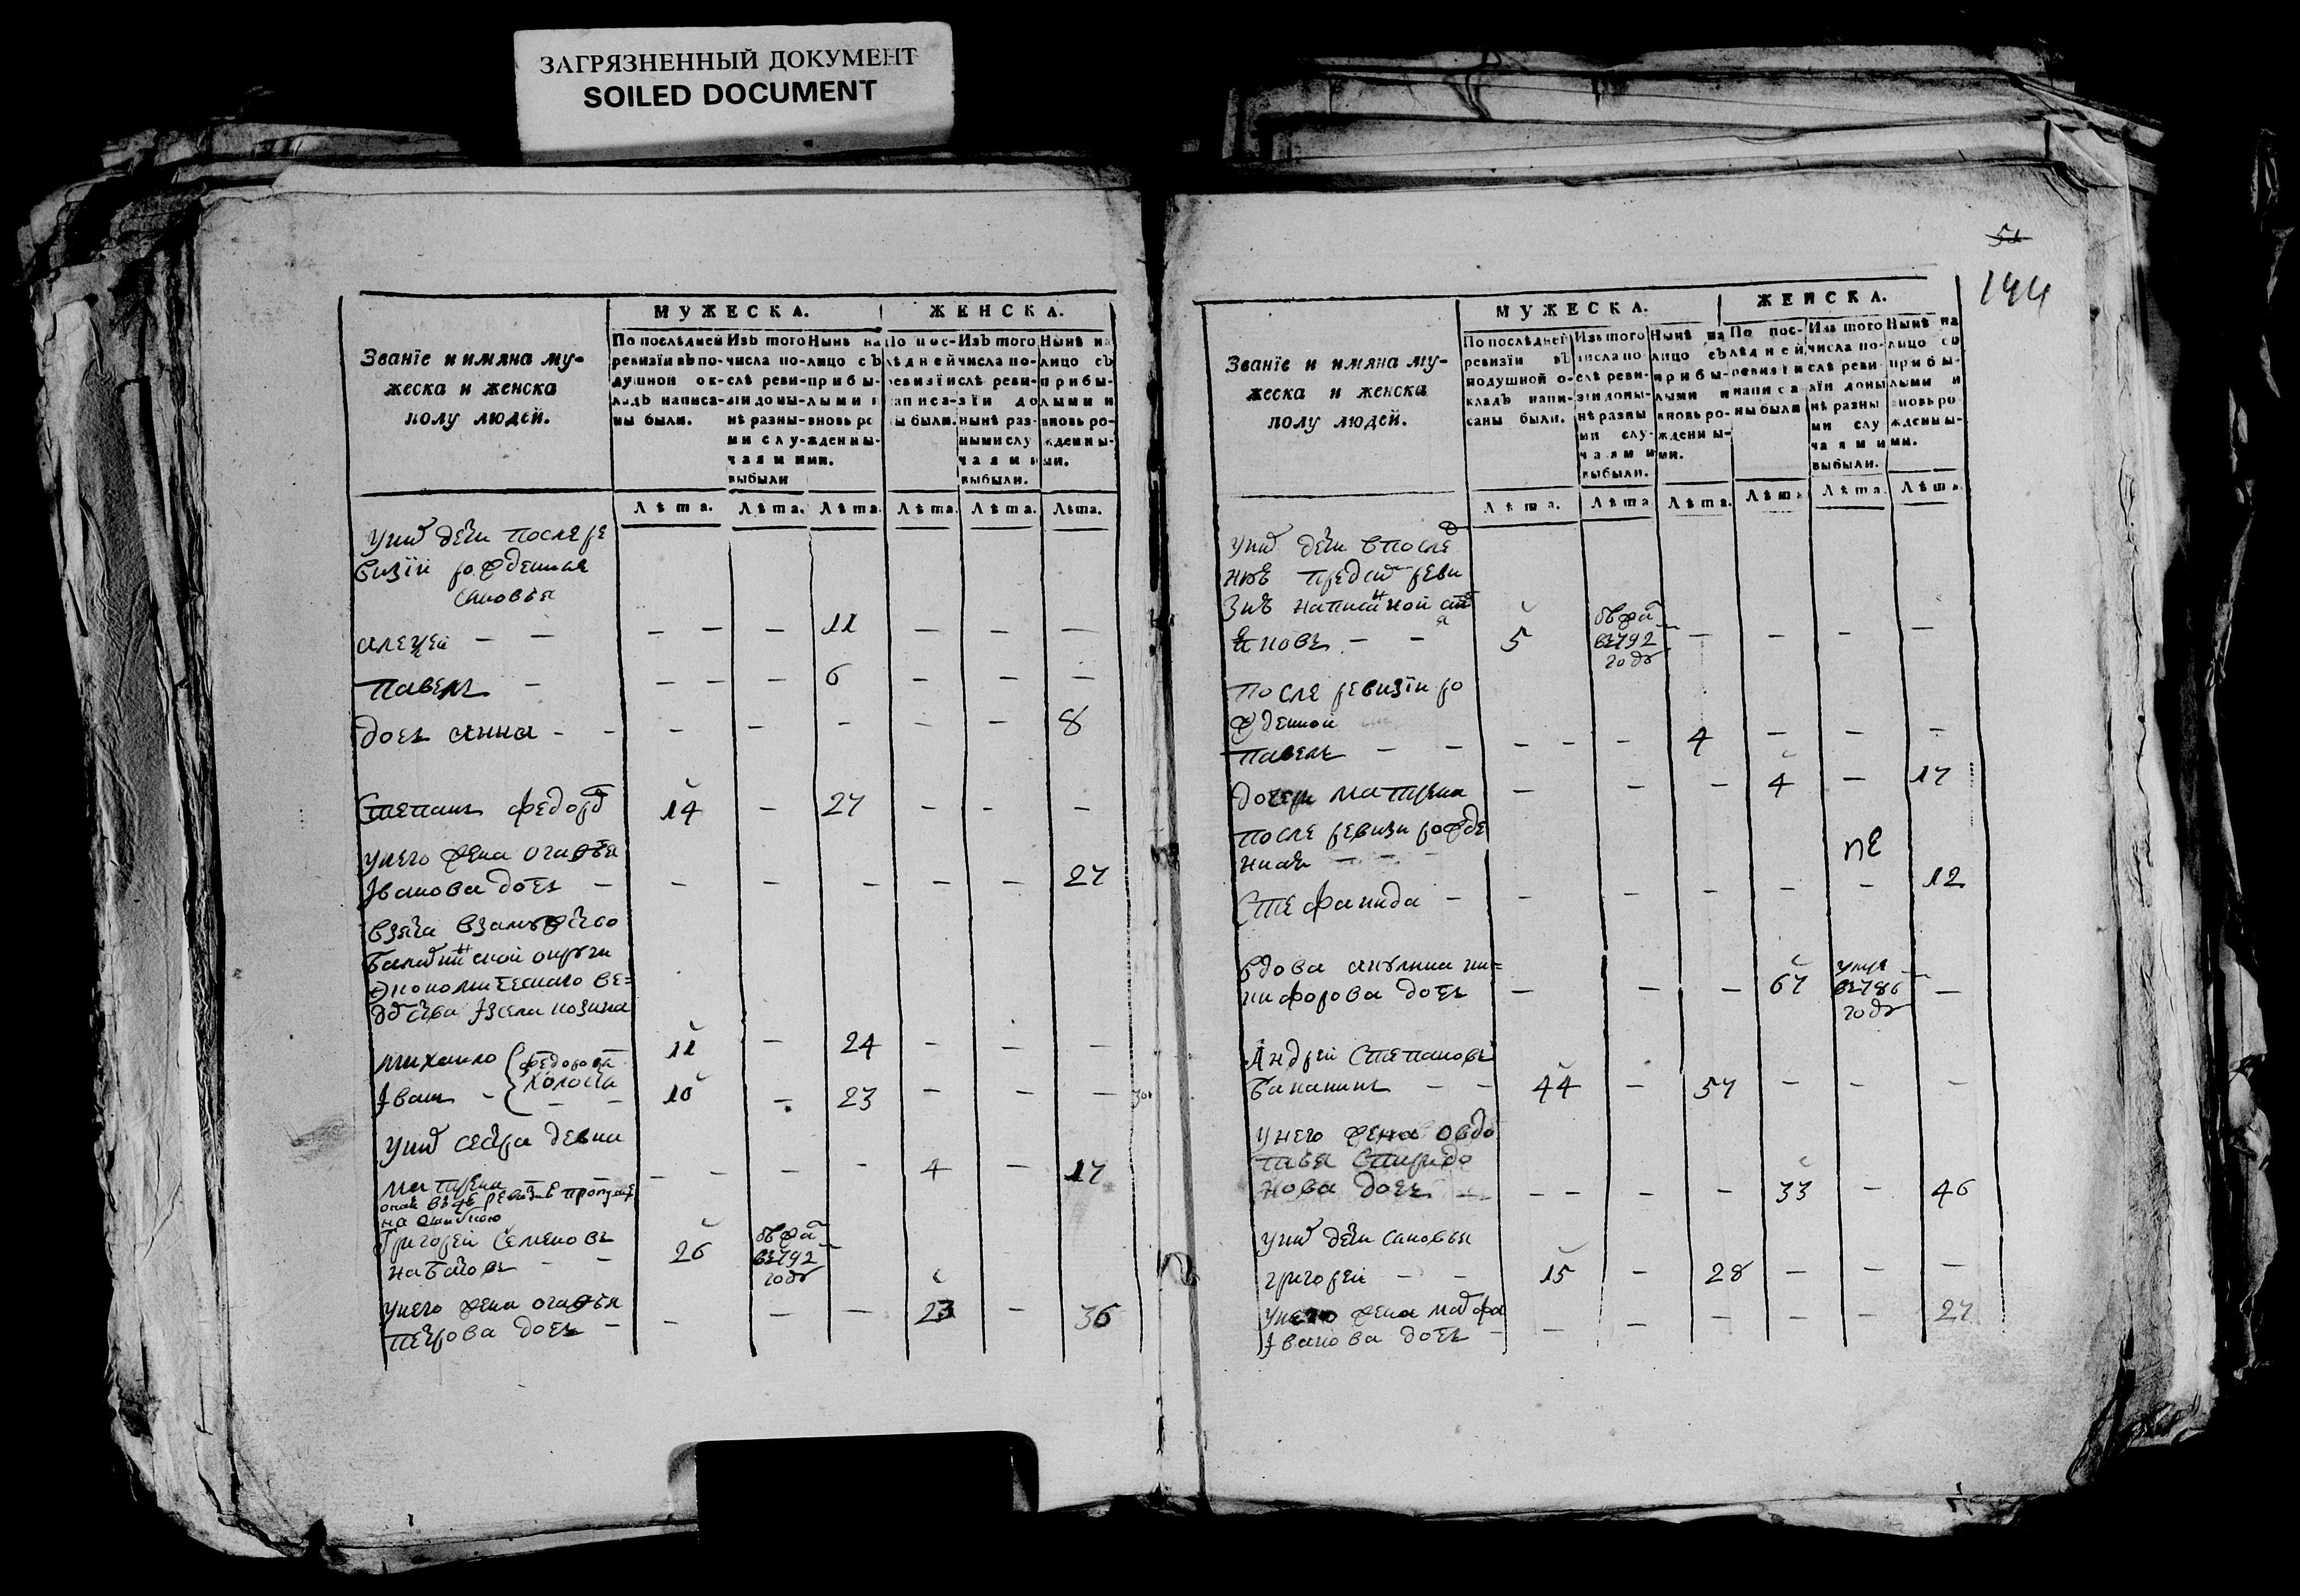 ЗАГРЯЗНЕННЫЙ ДОКУМЕНТ
SOILED DOCUMENT
Званїе и имяна му-
жеска и женска
полу людей.
МУЖЕСКА.
ЖЕНСКА.
По послѣдней ревизїи въ по-
душной ок-
ладъ написа-
ны были.
Изъ того числа по-
слѣ реви-
зїи доны-
нѣ разны-
ми слу-
чаями
выбыли
Нынѣ на
лицо съ
прибы-
лыми и
вновь ро
жденны-
ми.
По пос-
лѣдней
ревизїи
написа-
ны были.
Изъ того
числа по-
слѣ реви-
зїи до
нынѣ раз-
ными слу
чаями
выбыли.
Нынѣ на
лицо съ
прибы-
лыми и
вновь ро-
жденны-
ми.
Лѣта. Лѣта. Лѣта. Лѣта. Лѣта. Лѣта.
у них дети после ре
визїи рожденныя
сыновья
алеѯей — — — — — 11 — — —
павелъ — — — — 6 — — —
дочь анна - - — — — — — 8
Степанъ федоров 14 — 27 — - —
у него жена огафья
Iванова дочь — — — — — — 27
взята взамужество
экономическаго ве=
домства Iзсела
михаило федоровы 11 — 24 — — —
Iванъ - холосты 10 — 23 — — —
у них сестра девка
матрена — — — — 4 — 17
Григорей Семеновъ
26
въ 1792
году
у него жена огафья
петрова дочь — — — — 23 — 36
51
144
Званїе и имяна му-
жеска и женска
полу людей.
МУЖЕСКА.
ЖЕНСКА.
По послѣдней
ревизїи въ
подушной о-
кладъ напи-
саны были.
Изъ того
числа по
слѣ реви-
зїи доны-
нѣ разны
ми слу-
чаями
выбыли.
Нынѣ на
лицо съ
прибы-
лыми и
вновь ро-
жденны-
ми.
По пос-
лѣдней
ревизїи
написа-
ны были
Изъ того
числа по-
слѣ реви-
зїи доны
нѣ разны
ми слу
чаями
выбыли.
Нынѣ на
лицо съ
прибы-
лыми и
вновь ро
жденны-
ми.
Лѣта. Лѣта Лѣта. Лѣта Лѣта. Лѣта.
у них дети в после
ней пред сим реви
зиѣ написанной
5
въ 1792
году
после ревизїи ро
жденной
павелъ — — — - — 4 — — —
дочери матрена — — — 4 — 17
после ревизи рожде
нная — - -
Стефанида — — — — — — 12
вдова акулина ни=
кифорова дочь — — — 67
умре
въ 1786
году
Андрей Степановъ
44 — 57 — — —
у него жена овдо
тья Спиридо
нова дочь — — — — — 33 — 46
у них дети сыновья
григорей — — 15 — 28 — — —
у него жена марфа
Iванова дочь — — — — — — 27